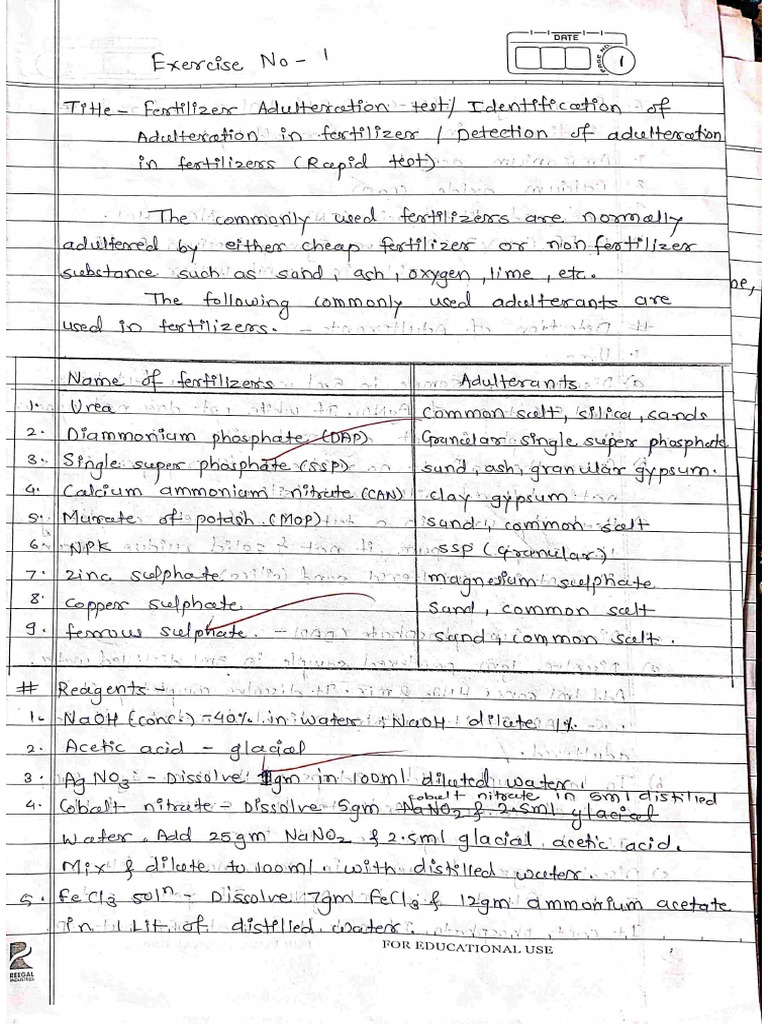 DATE
PAGE NO. 1
Exercise No - 1
Title - Fertilizer Adulteration test / Identification of
Adulteration in fertilizer / Detection of adulteration
in fertilizers (Rapid test)
The commonly used fertilizers are normally
adultered by either cheap fertilizer or non fertilizer
substance such as sand, ash, oxygen, lime, etc.
The following commonly used adulterants are
used in fertilizers.
Name of fertilizers Adulterants
1. Urea Common salt, silica, sands
2. Diammonium phosphate (DAP) Granular single super phosphate
3. Single super phosphate (SSP) sand, ash, granular gypsum.
4. Calcium ammonium nitrate (CAN) clay gypsum
5. Murate of potash (MOP) sand, common salt
6. NPK SSP (Granular)
7. zinc sulphate magnesium sulphate
8. copper sulphate sand, common salt
9. ferrous sulphate. sand, common salt.
# Reagents -
1. NaOH (conc.) - 40% in water, NaOH dilute 1%
2. Acetic acid - glacial
3. AgNO3 - Dissolve 1gm in 100ml diluted water.
cobalt nitrate in 5ml distilled
4. Cobalt nitrate - Dissolve 5gm NaNO2 & 2.5ml glacial
Water. Add 25gm NaNO2 & 2.5ml glacial acetic acid.
Mix & dilute to 100ml with distilled water.
5. FeCl3 soln - Dissolve 7gm FeCl3 & 12gm ammonium acetate
in 1 Lit of distilled water.
FOR EDUCATIONAL USE
REEGAL
INDUSTRIES